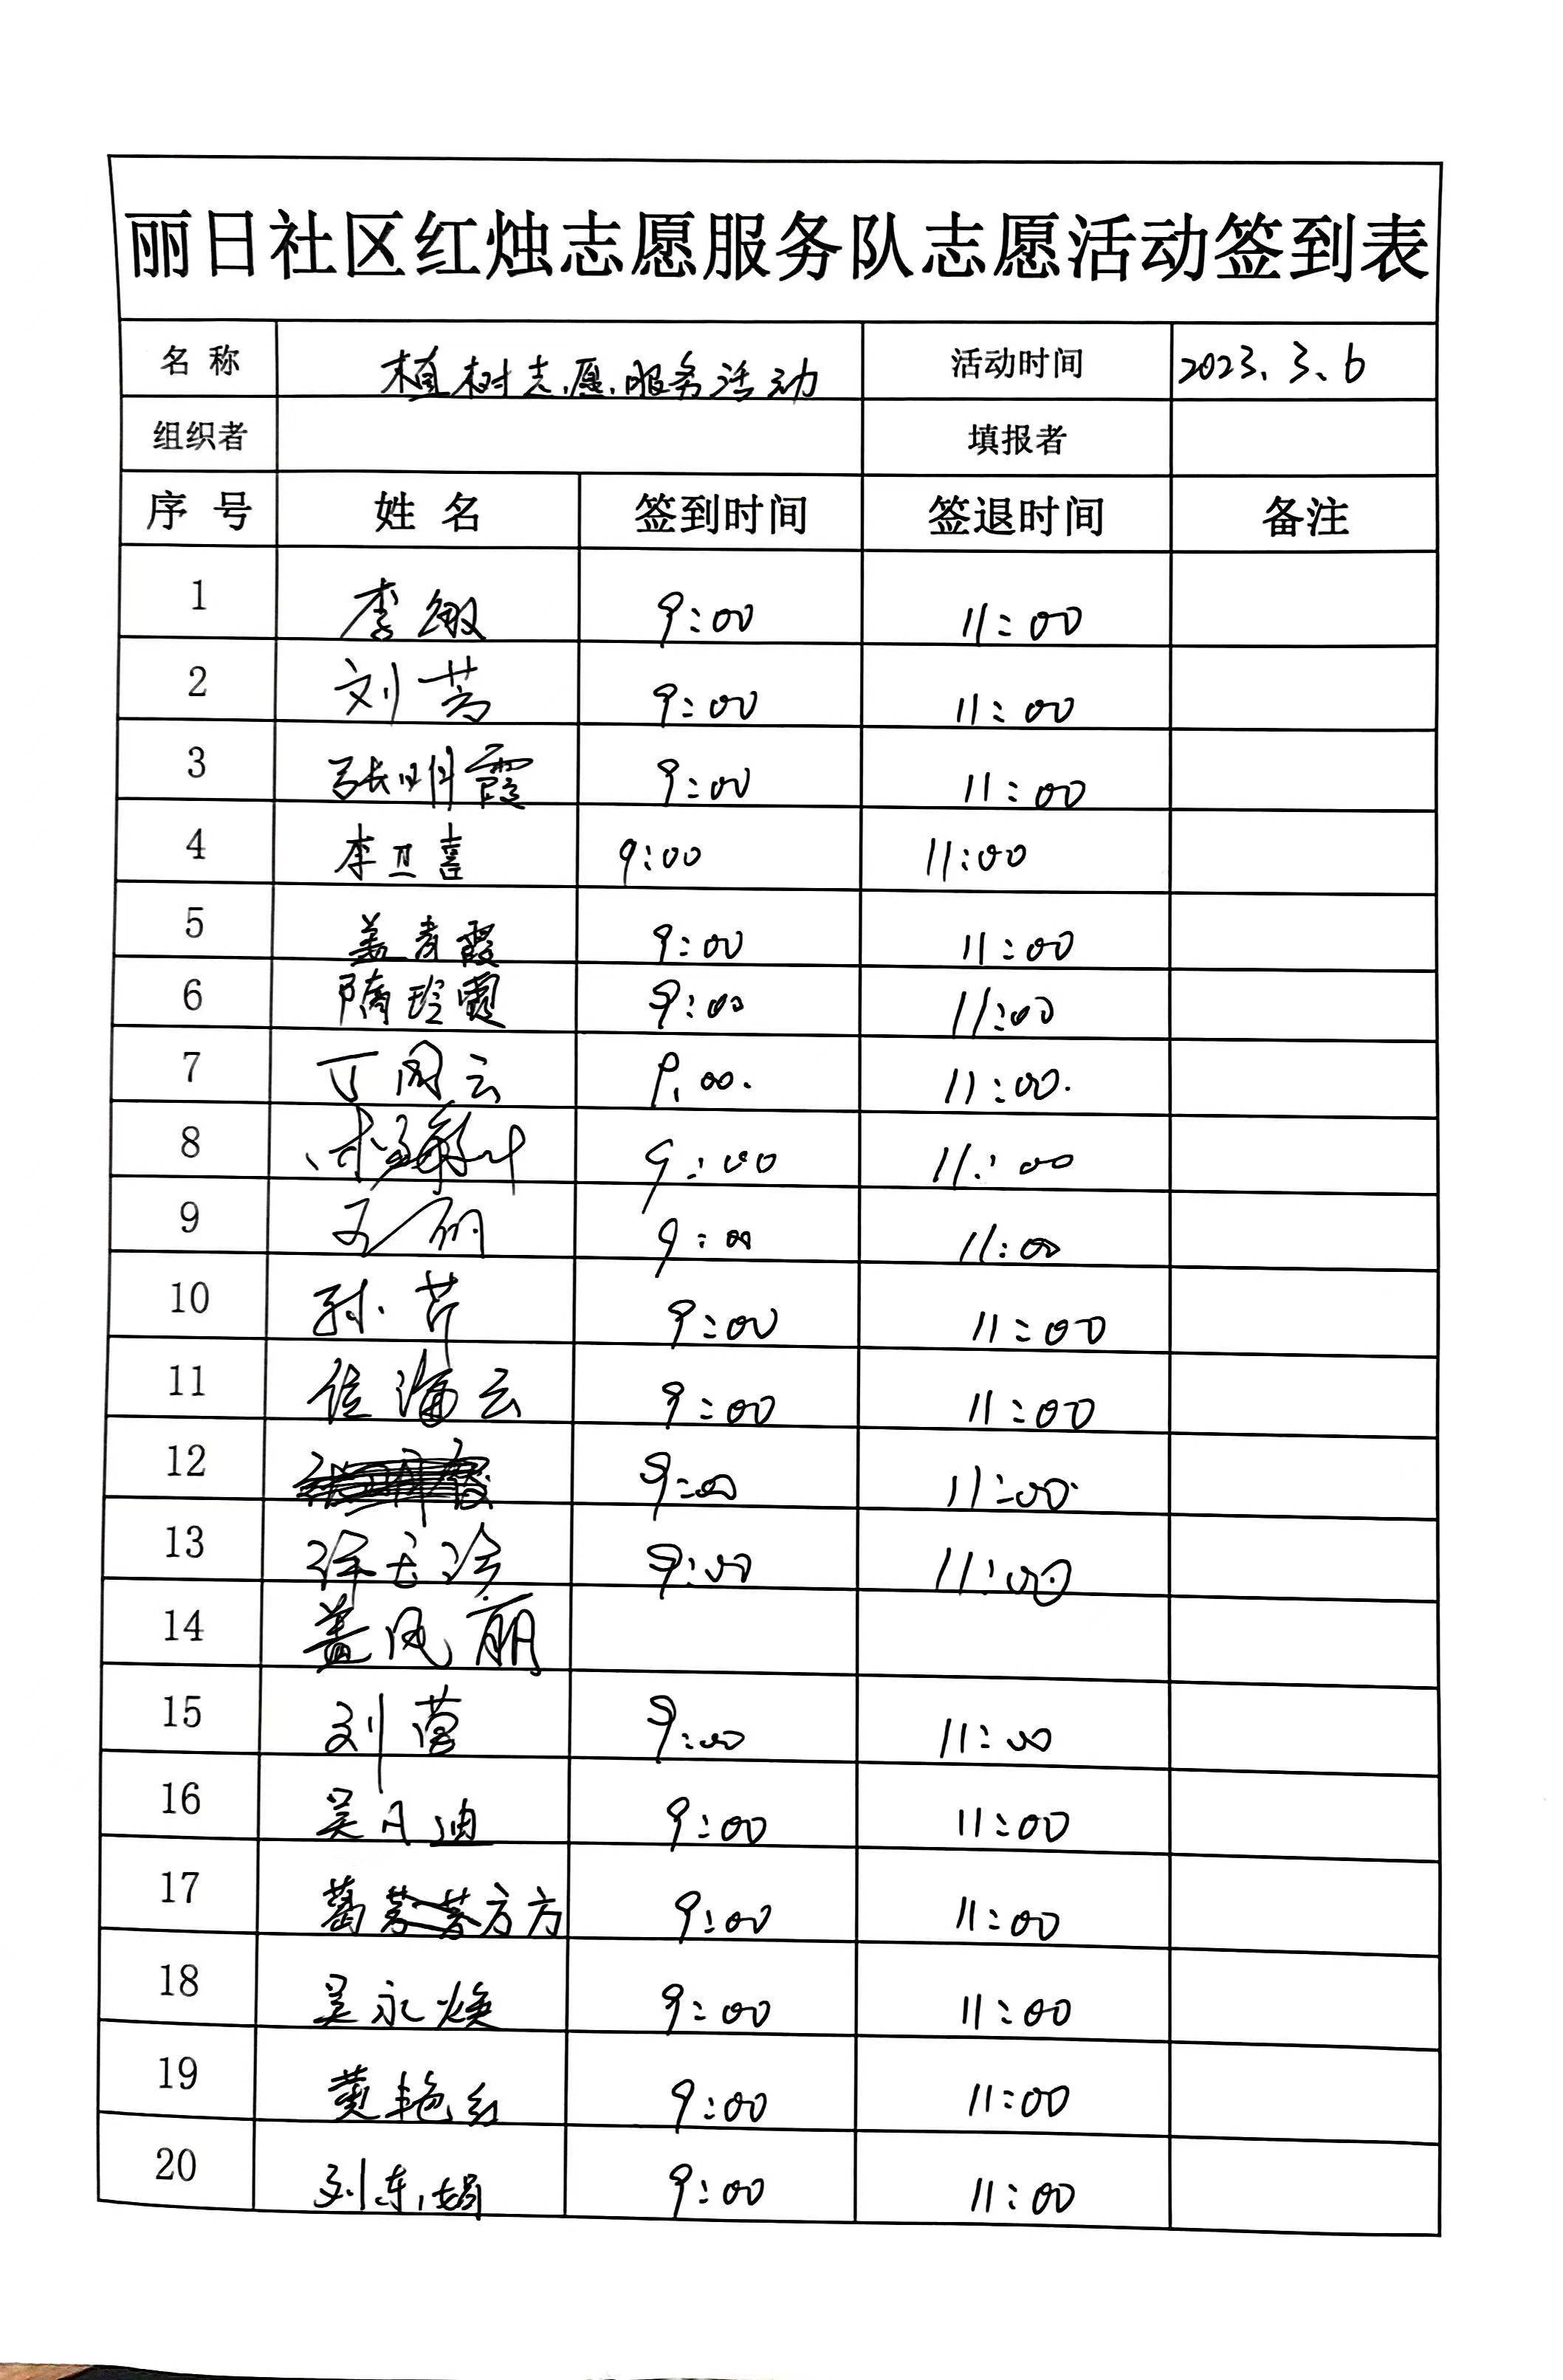 丽日社区红烛志愿服务队志愿活动签到表
名 称 植树志愿服务活动 活动时间 2023、3、6
组织者 填报者
序 号 姓 名 签到时间 签退时间 备注
1 李敏 9:00 11:00
2 刘芳 9:00 11:00
3 张明霞 9:00 11:00
4 李卫喜 9:00 11:00
5 盖青霞 9:00 11:00
6 隋玲霞 9:00 11:00
7 丁闵云 9:00. 11:00.
8 9:00 11:00
9 王丽 9:00 11:00
10 孙芹 9:00 11:00
11 9:00 11:00
12 9:00 11:00
13 9:00 11:00
14 盖凤丽
15 刘营 9:00 11:00
16 吴凡迪 9:00 11:00
17 葛方方 9:00 11:00
18 吴永焕 9:00 11:00
19 黄艳红 9:00 11:00
20 刘东娟 9:00 11:00